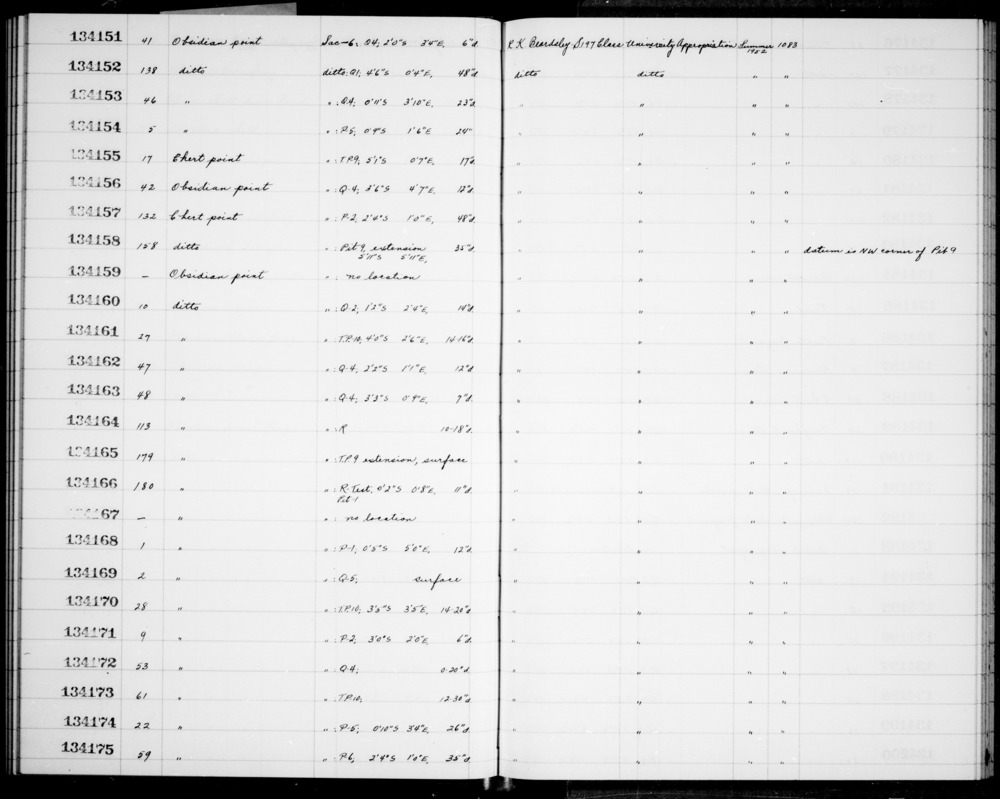 134151 41 Obsidian point Sac-6: Q4; 2'0"S 3'4"E, 6"d. R.K. Beardsley S197 Class University Appropriation Summer 1952 1083
134152 138 ditto ditto: Q1; 4'6"S 0'4"E, 48"d ditto ditto " "
134153 46 " " : Q4; 0'11"S 3'10"E, 23"d " " " "
134154 5 " " : P-5; 0'9"S 1'6"E, 24" " " " "
134155 17 Chert point " : T.P.9; 5'1"S 0'7"E, 17"d. " " " "
134156 42 Obsidian point " : Q-4; 3'6"S 4'7"E, 12"d. " " " "
134157 132 Chert point " : P-2, 2'4"S 1'0"E, 48"d. " " " "
134158 158 ditto " : Pit 9, extension 35"d. " " " " datum is NW corner of Pit 9
5'11"S 5'11"E,
134159 — Obsidian point " : no location " " " "
134160 10 ditto " : Q-2, 1'2"S 2'4"E, 14"d. " " " "
134161 27 " " : T.P.10, 4'0"S 2'6"E, 14-16"d. " " " "
134162 47 " " : Q-4; 2'2"S 1'1"E, 12"d " " " "
134163 48 " " : Q-4; 3'3"S 0'9"E, 7"d. " " " "
134164 113 " " : R 10-18"d. " " " "
134165 179 " " : T.P.9 extension, surface " " " "
134166 180 " " : R-Test, 0'2"S 0'8"E, 11"d. " " " "
Pit-1
67 — " " : no location " " " "
134168 1 " " : P-1, 0'5"S 5'0"E, 12"d. " " " "
134169 2 " " : Q-5; surface " " " "
134170 28 " " : T.P.10; 3'5"S 3'5"E, 14-20"d. " " " "
134171 9 " " : P-2, 3'0"S 2'0"E, 6"d. " " " "
134172 53 " " : Q-4; 0-20"d. " " " "
134173 61 " " : T.P.10; 12-30"d. " " " "
134174 22 " " : P-5; 0'10"S 3'4"E, 26"d. " " " "
134175 59 " " : P-6, 2'4"S 1'0"E, 35"d. " " " "